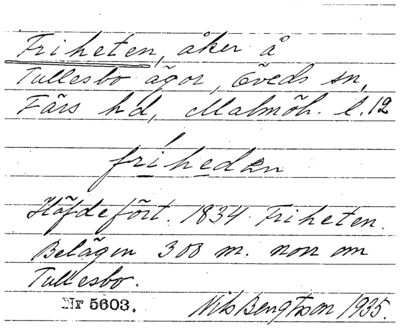 Friheten, åker å
Tullesbo ägor, Öveds sn,
Färs hd, Malmöh. l. 12
friheden
Häfdefört. 1834 Friheten.
Belägen 300 m. norr om
Tullesbo.
Nr 5603. Nils Bengtsson 1935.